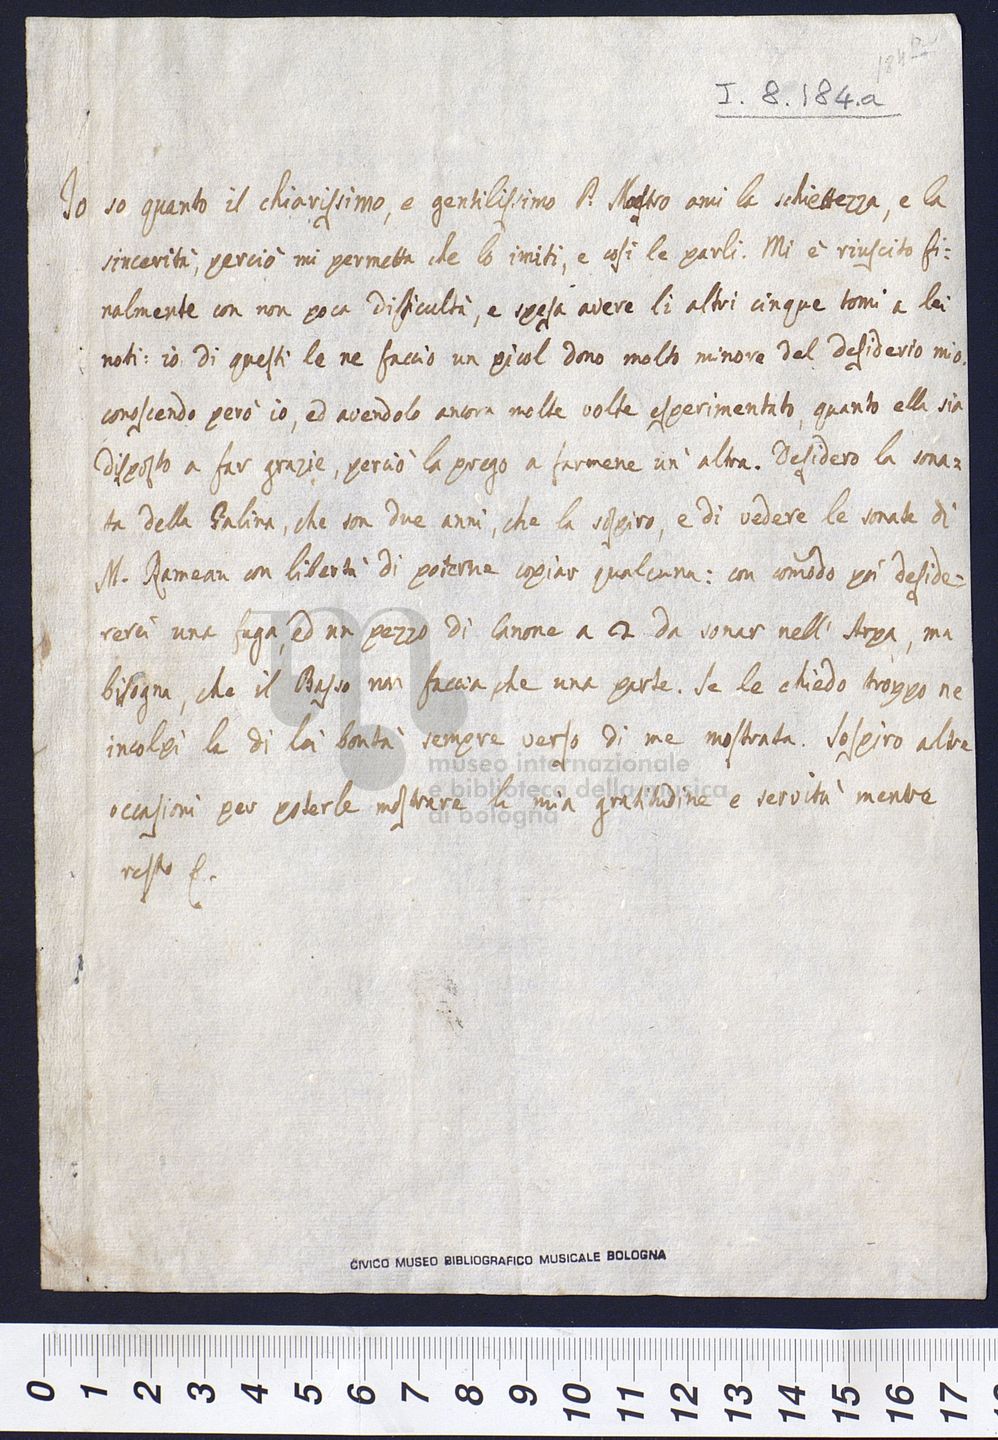 184
I. 8. 184.a
Io so quanto il chiarissimo, e gentilissimo P. Mastro ami la schiettezza, e la
sincerità, perciò mi permetta che lo imiti, e così le parli. Mi è riuscito fi:
nalmente con non poca difficultà, e spesa avere li altri cinque tomi a lei
noti: io di questi le ne faccio un picol dono molto minore del desiderio mio.
conoscendo però io, ed avendolo ancora molte volte esperimentato, quanto ella sia
disposto a far grazie, perciò la prego a farmene un' altra. Desidero la sona=
ta della Galina, che son due anni, che la sospiro, e di vedere le sonate di
M. Rameau con libertà di poterne copiar qualcuna: con comodo poi deside=
rerei una fuga, ed un pezzo di Canone a 2 da sonar nell' Arpa, ma
bisogna, che il Basso non faccia che una parte. Se le chiedo troppo ne
incolpi la di lei bontà sempre verso di me mostrata. Sospiro altre
occasioni per poterle mostrare la mia gratitudine e servitù mentre
resto
museo internazionale
e biblioteca della musica
di bologna
CIVICO MUSEO BIBLIOGRAFICO MUSICALE BOLOGNA
0 1 2 3 4 5 6 7 8 9 10 11 12 13 14 15 16 17